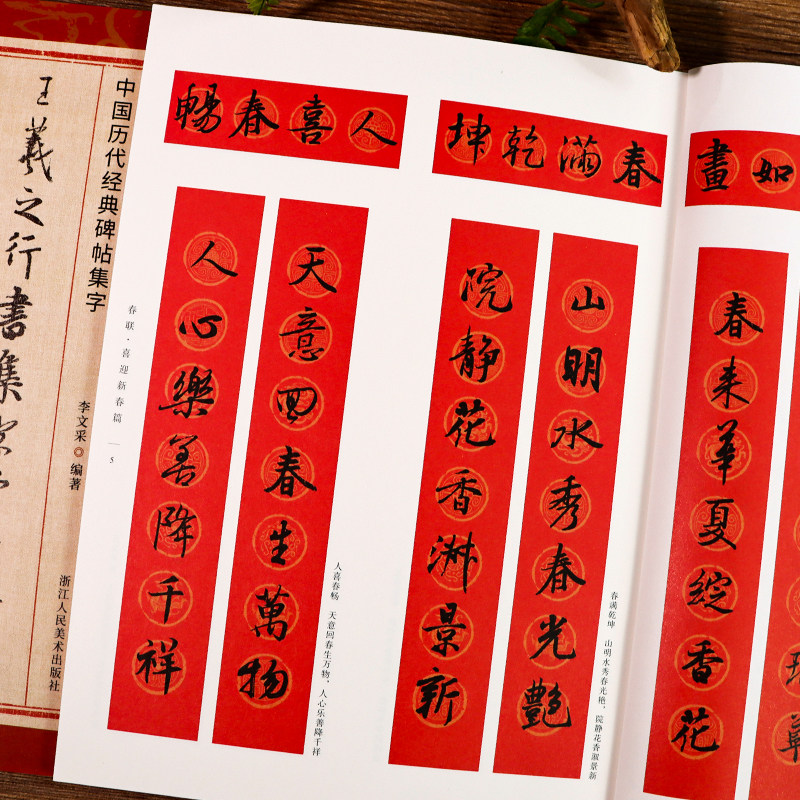 中国历代经典碑帖集字
王羲之行書集
李文采◎编著
浙江人民美术出版社
人喜春暢
天意回春生萬物
人心樂善降千祥
人喜春畅 天意回春生万物，人心乐善降千祥
春联·喜迎新春篇 — 5
春滿乾坤
山明水秀春光艷
院静花香淑景新
春满乾坤 山明水秀春光艳，院静花香淑景新
如畫
春来華夏綻香花